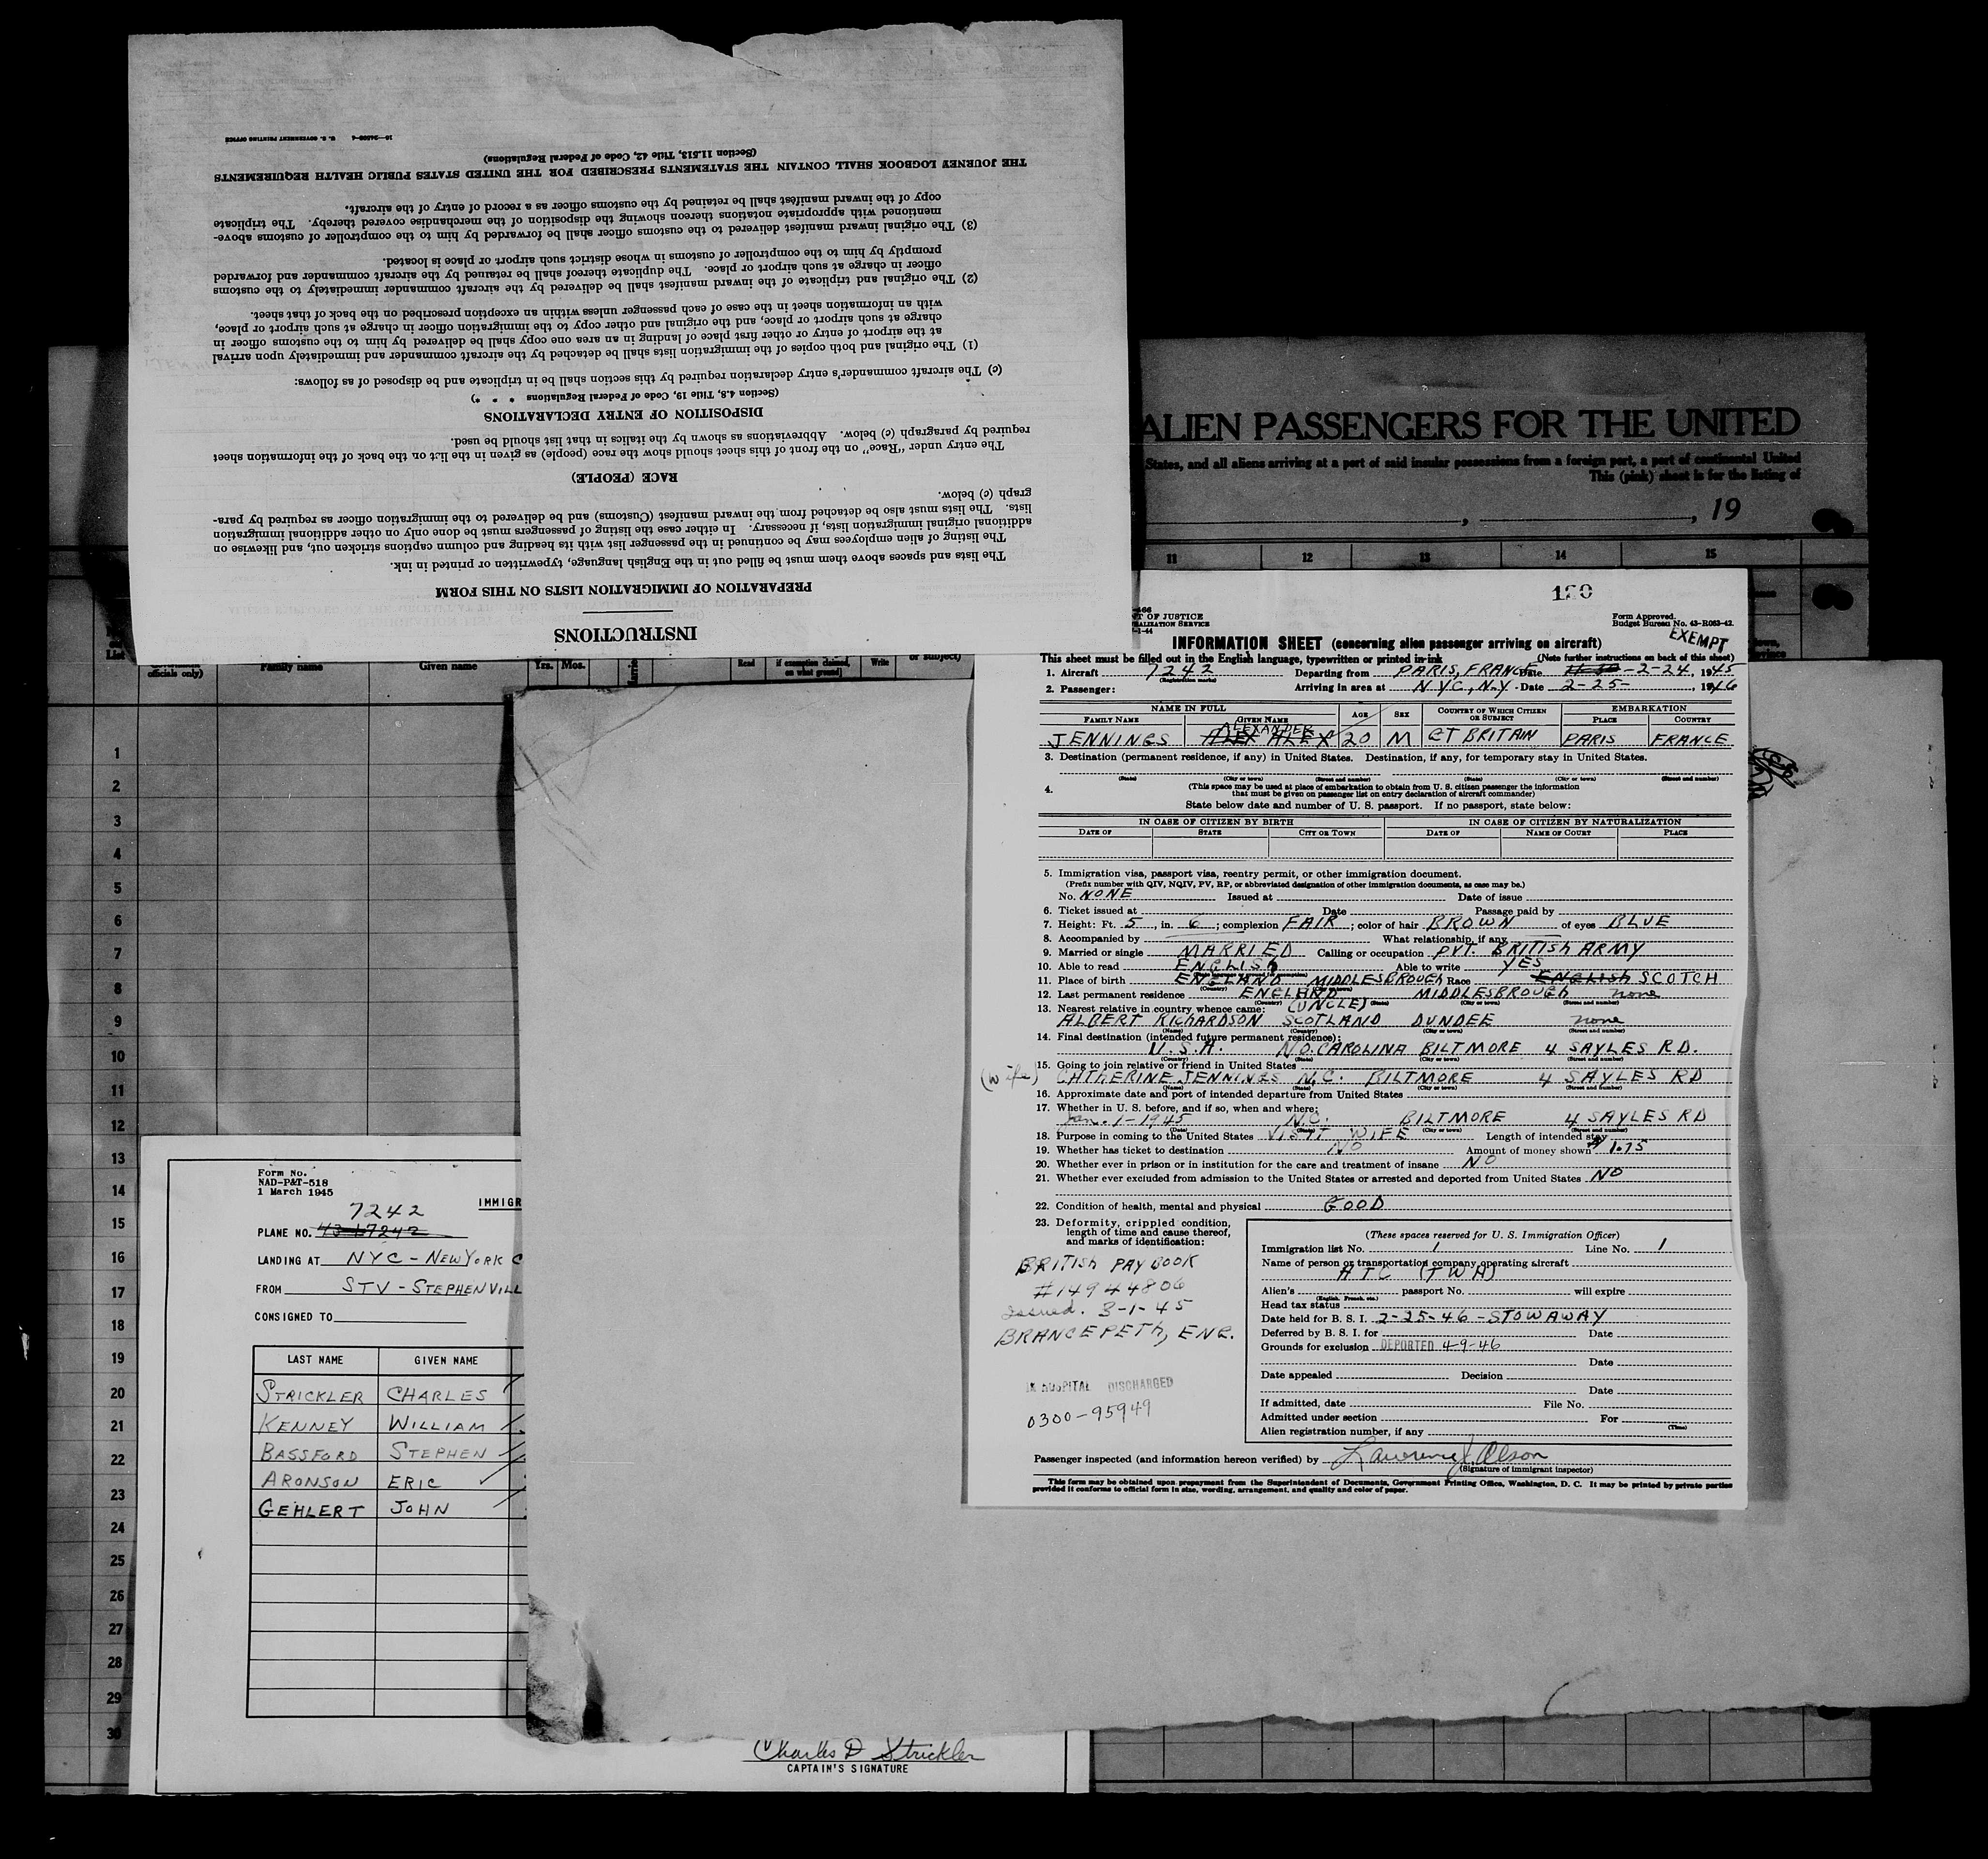 INSTRUCTIONS
PREPARATION OF IMMIGRATION LISTS ON THIS FORM
The lists and spaces above them must be filled out in the English language, typewritten or printed in ink.
The listing of alien employees may be continued in the passenger list with its heading and column captions stricken out, and likewise on
additional original immigration lists, if necessary. In either case the listing of passengers must be done only on other additional immigration
lists. The lists must also be detached from the inward manifest (Customs) and be delivered to the immigration officer as required by para-
graph (c) below.
RACE (PEOPLE)
The entry under "Race" on the front of this sheet should show the race (people) as given in the list on the back of the information sheet
required by paragraph (c) below. Abbreviations as shown by the italics in that list should be used.
DISPOSITION OF ENTRY DECLARATIONS
(Section 4.8, Title 19, Code of Federal Regulations * * *)
(c) The aircraft commander's entry declaration required by this section shall be in triplicate and be disposed of as follows:
(1) The original and both copies of the immigration lists shall be detached by the aircraft commander and immediately upon arrival
at the airport of entry or other first place of landing in an area one copy shall be delivered by him to the customs officer in
charge at such airport or place, and the original and other copy to the immigration officer in charge at such airport or place,
with an information sheet in the case of each passenger unless within an exception prescribed on the back of that sheet.
(2) The original and triplicate of the inward manifest shall be delivered by the aircraft commander immediately to the customs
officer in charge at such airport or place. The duplicate thereof shall be retained by the aircraft commander and forwarded
promptly by him to the comptroller of customs in whose district such airport or place is located.
(3) The original inward manifest delivered to the customs officer shall be forwarded by him to the comptroller of customs above-
mentioned with appropriate notations thereon showing the disposition of the merchandise covered thereby. The triplicate
copy of the inward manifest shall be retained by the customs officer as a record of entry of the aircraft.
THE JOURNEY LOGBOOK SHALL CONTAIN THE STATEMENTS PRESCRIBED FOR THE UNITED STATES PUBLIC HEALTH REQUIREMENTS
(Section 11.513, Title 42, Code of Federal Regulations)
U. S. GOVERNMENT PRINTING OFFICE
ALIEN PASSENGERS FOR THE UNITED
States, and all aliens arriving at a port of said insular possessions from a foreign port, a port of continental United
This (pink) sheet is for the listing of
, 19
11 12 13 14 15
List
officials only)
Family name Given name Yrs. Mos. Read if exemption claimed, on what ground] Write or subject)
1
2
3
4
5
6
7
8
9
10
11
12
13
14
15
16
17
18
19
20
21
22
23
24
25
26
27
28
29
30
Form No.
NAD-P&T-518
1 March 1945
IMMIGR
7242
PLANE NO. 43-67242
LANDING AT NYC - NEW YORK C
FROM STV - STEPHENVILL
CONSIGNED TO
LAST NAME GIVEN NAME
STRICKLER CHARLES
KENNEY WILLIAM
BASSFORD STEPHEN
ARONSON ERIC
GEHLERT JOHN
Charles D Strickler
CAPTAIN'S SIGNATURE
T OF JUSTICE
ALIZATION SERVICE
-1-44
Form Approved.
Budget Bureau No. 43-R063-42.
EXEMPT
INFORMATION SHEET (concerning alien passenger arriving on aircraft)
This sheet must be filled out in the English language, typewritten or printed in ink (Note further instructions on back of this sheet)
1. Aircraft 7242 (Registration marks) Departing from PARIS, FRANCE Date 2-24, 1945
2. Passenger: Arriving in area at N.Y.C., N.Y. Date 2-25-, 1946
NAME IN FULL AGE SEX COUNTRY OF WHICH CITIZEN OR SUBJECT EMBARKATION
FAMILY NAME GIVEN NAME PLACE COUNTRY
ALEXANDER
JENNINGS ALEX ALEX 20 M GT BRITAIN PARIS FRANCE
3. Destination (permanent residence, if any) in United States. Destination, if any, for temporary stay in United States.
(State) (City or town) (Street and number) (State) (City or town) (Street and number)
4. (This space may be used at place of embarkation to obtain from U. S. citizen passenger the information
that must be given on passenger list on entry declaration of aircraft commander)
State below date and number of U. S. passport. If no passport, state below:
IN CASE OF CITIZEN BY BIRTH IN CASE OF CITIZEN BY NATURALIZATION
DATE OF STATE CITY OR TOWN DATE OF NAME OF COURT PLACE
5. Immigration visa, passport visa, reentry permit, or other immigration document.
(Prefix number with QIV, NQIV, PV, RP, or abbreviated designation of other immigration documents, as case may be.)
No. NONE Issued at Date of issue
6. Ticket issued at Date Passage paid by
7. Height: Ft. 5, in. 6; complexion FAIR; color of hair BROWN of eyes BLUE
8. Accompanied by What relationship, if any
9. Married or single MARRIED Calling or occupation PVT. BRITISH ARMY
10. Able to read ENGLISH Able to write YES
11. Place of birth ENGLAND MIDDLESBROUGH Race ENGLISH SCOTCH
12. Last permanent residence ENGLAND MIDDLESBROUGH none
13. Nearest relative in country whence came: (UNCLE)
ALBERT RICHARDSON SCOTLAND DUNDEE none
14. Final destination (intended future permanent residence):
U.S.A. NO. CAROLINA BILTMORE 4 SAYLES RD.
15. Going to join relative or friend in United States
(wife) CATHERINE JENNINGS N.C. BILTMORE 4 SAYLES RD
16. Approximate date and port of intended departure from United States
17. Whether in U. S. before, and if so, when and where:
Jan. 1-1945 N.C. BILTMORE 4 SAYLES RD
18. Purpose in coming to the United States VISIT WIFE Length of intended stay
19. Whether has ticket to destination NO Amount of money shown $1.75
20. Whether ever in prison or in institution for the care and treatment of insane NO
21. Whether ever excluded from admission to the United States or arrested and deported from United States NO
22. Condition of health, mental and physical GOOD
23. Deformity, crippled condition,
length of time and cause thereof,
and marks of identification:
BRITISH PAY BOOK
#14944806
Issued. 3-1-45
BRANCEPETH, ENG.
IN HOSPITAL DISCHARGED
0300-95949
(These spaces reserved for U. S. Immigration Officer)
Immigration list No. 1 Line No. 1
Name of person or transportation company operating aircraft
ATC (TWA)
Alien's (English, French, etc.) passport No. will expire
Head tax status
Date held for B. S. I. 2-25-46 - STOWAWAY
Deferred by B. S. I. for Date
Grounds for exclusion DEPORTED 4-9-46
Date
Date appealed Decision
Date
If admitted, date File No.
Admitted under section For (Time)
Alien registration number, if any
Passenger inspected (and information hereon verified) by Lawrence J. Olson
(Signature of immigrant inspector)
This form may be obtained upon prepayment from the Superintendent of Documents, Government Printing Office, Washington, D. C. It may be printed by private parties
provided it conforms to official form in size, wording, arrangement, and quality and color of paper.